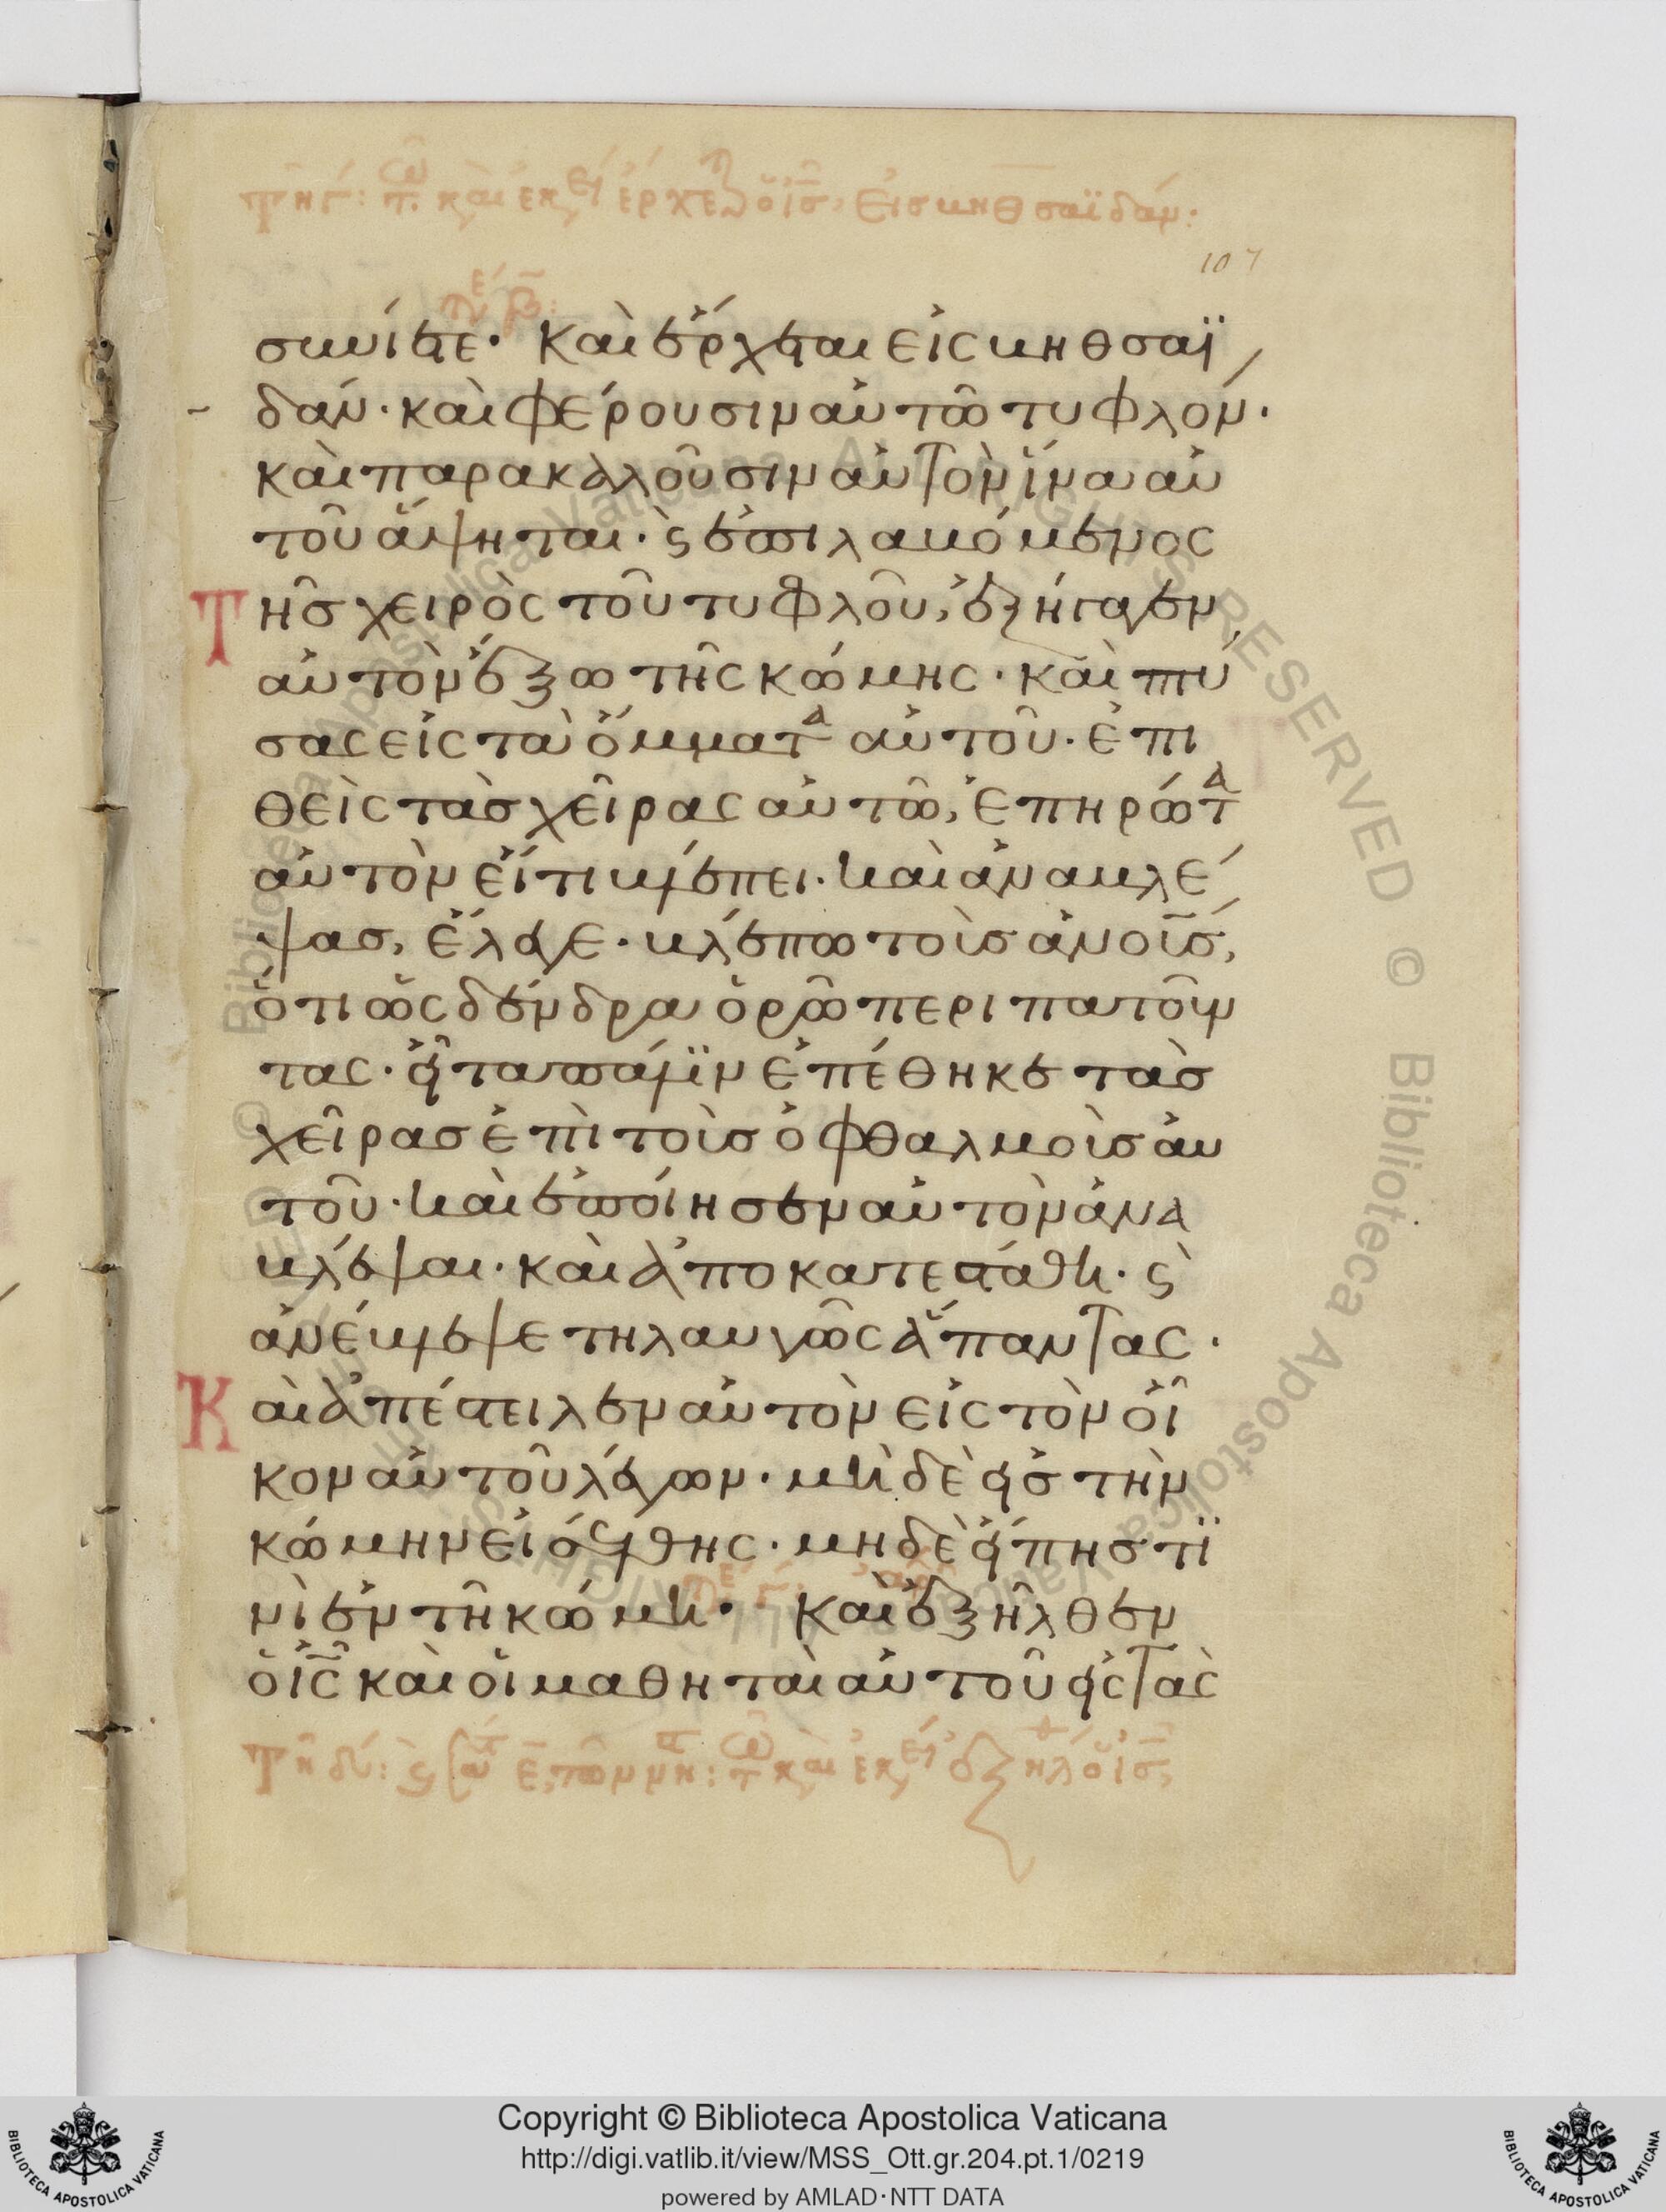 τῆ γ: τ. κ αι εκ ει έρχε ὁ ις, εις βηθσαϊδάν:
107
τε β:
συνίετε· Καὶ ἔρχεται εἰς βηθσαϊ
δάν· καὶ φέρουσιν αὐτῶ τυφλόν·
καὶ παρακαλοῦσιν αὐτὸν ἵνα αὐ
τοῦ ἅψηται· ϛ ἐπιλαβόμενος
Τῆς χειρὸς τοῦ τυφλοῦ, ἐξήγαγεν
αὐτὸν ἔξω τῆς κώμης· καὶ πτύ
σας εἰς τὰ ὄμματα αὐτοῦ· ἐπι
θεὶς τὰς χεῖρας αὐτῶ, ἐπηρώτα
αὐτὸν εἴ τι βλέπει· καὶ ἀναβλέ
ψας, ἔλεγε· βλέπω τοὺς ἀνους,
ὅτι ὡς δένδρα ὁρῶ περιπατοῦν
τας· εἶτα πάλϊν ἐπέθηκε τὰς
χεῖρας ἐπὶ τοὺς ὀφθαλμοὺς αὐ
τοῦ· καὶ ἐποίησεν αὐτὸν ἀνα
βλέψαι· καὶ ἀποκατεστάθη· ϛ
ἀνέβλεψε τηλαυγῶς ἅπαντας·
Καὶ ἀπέστειλεν αὐτὸν εἰς τὸν οἶ
κον αὐτοῦ λέγων· μὴ δὲ εἰς τὴν
κώμην εἰσέλθης· μηδὲ εἴπης τϊ
νὶ ἐν τῆ κώμη· Καὶ ἐξῆλθεν
ὁ ις καὶ οἱ μαθηταὶ αὐτοῦ εἰς τὰς
Τῆ δ: ϛ ε, τῶν νη: τ κ αι εκ ει ἐξηλ ὁ ις,
Copyright © Biblioteca Apostolica Vaticana
http://digi.vatlib.it/view/MSS_Ott.gr.204.pt.1/0219
powered by AMLAD·NTT DATA
BIBLIOTECA APOSTOLICA VATICANA
BIBLIOTECA APOSTOLICA VATICANA